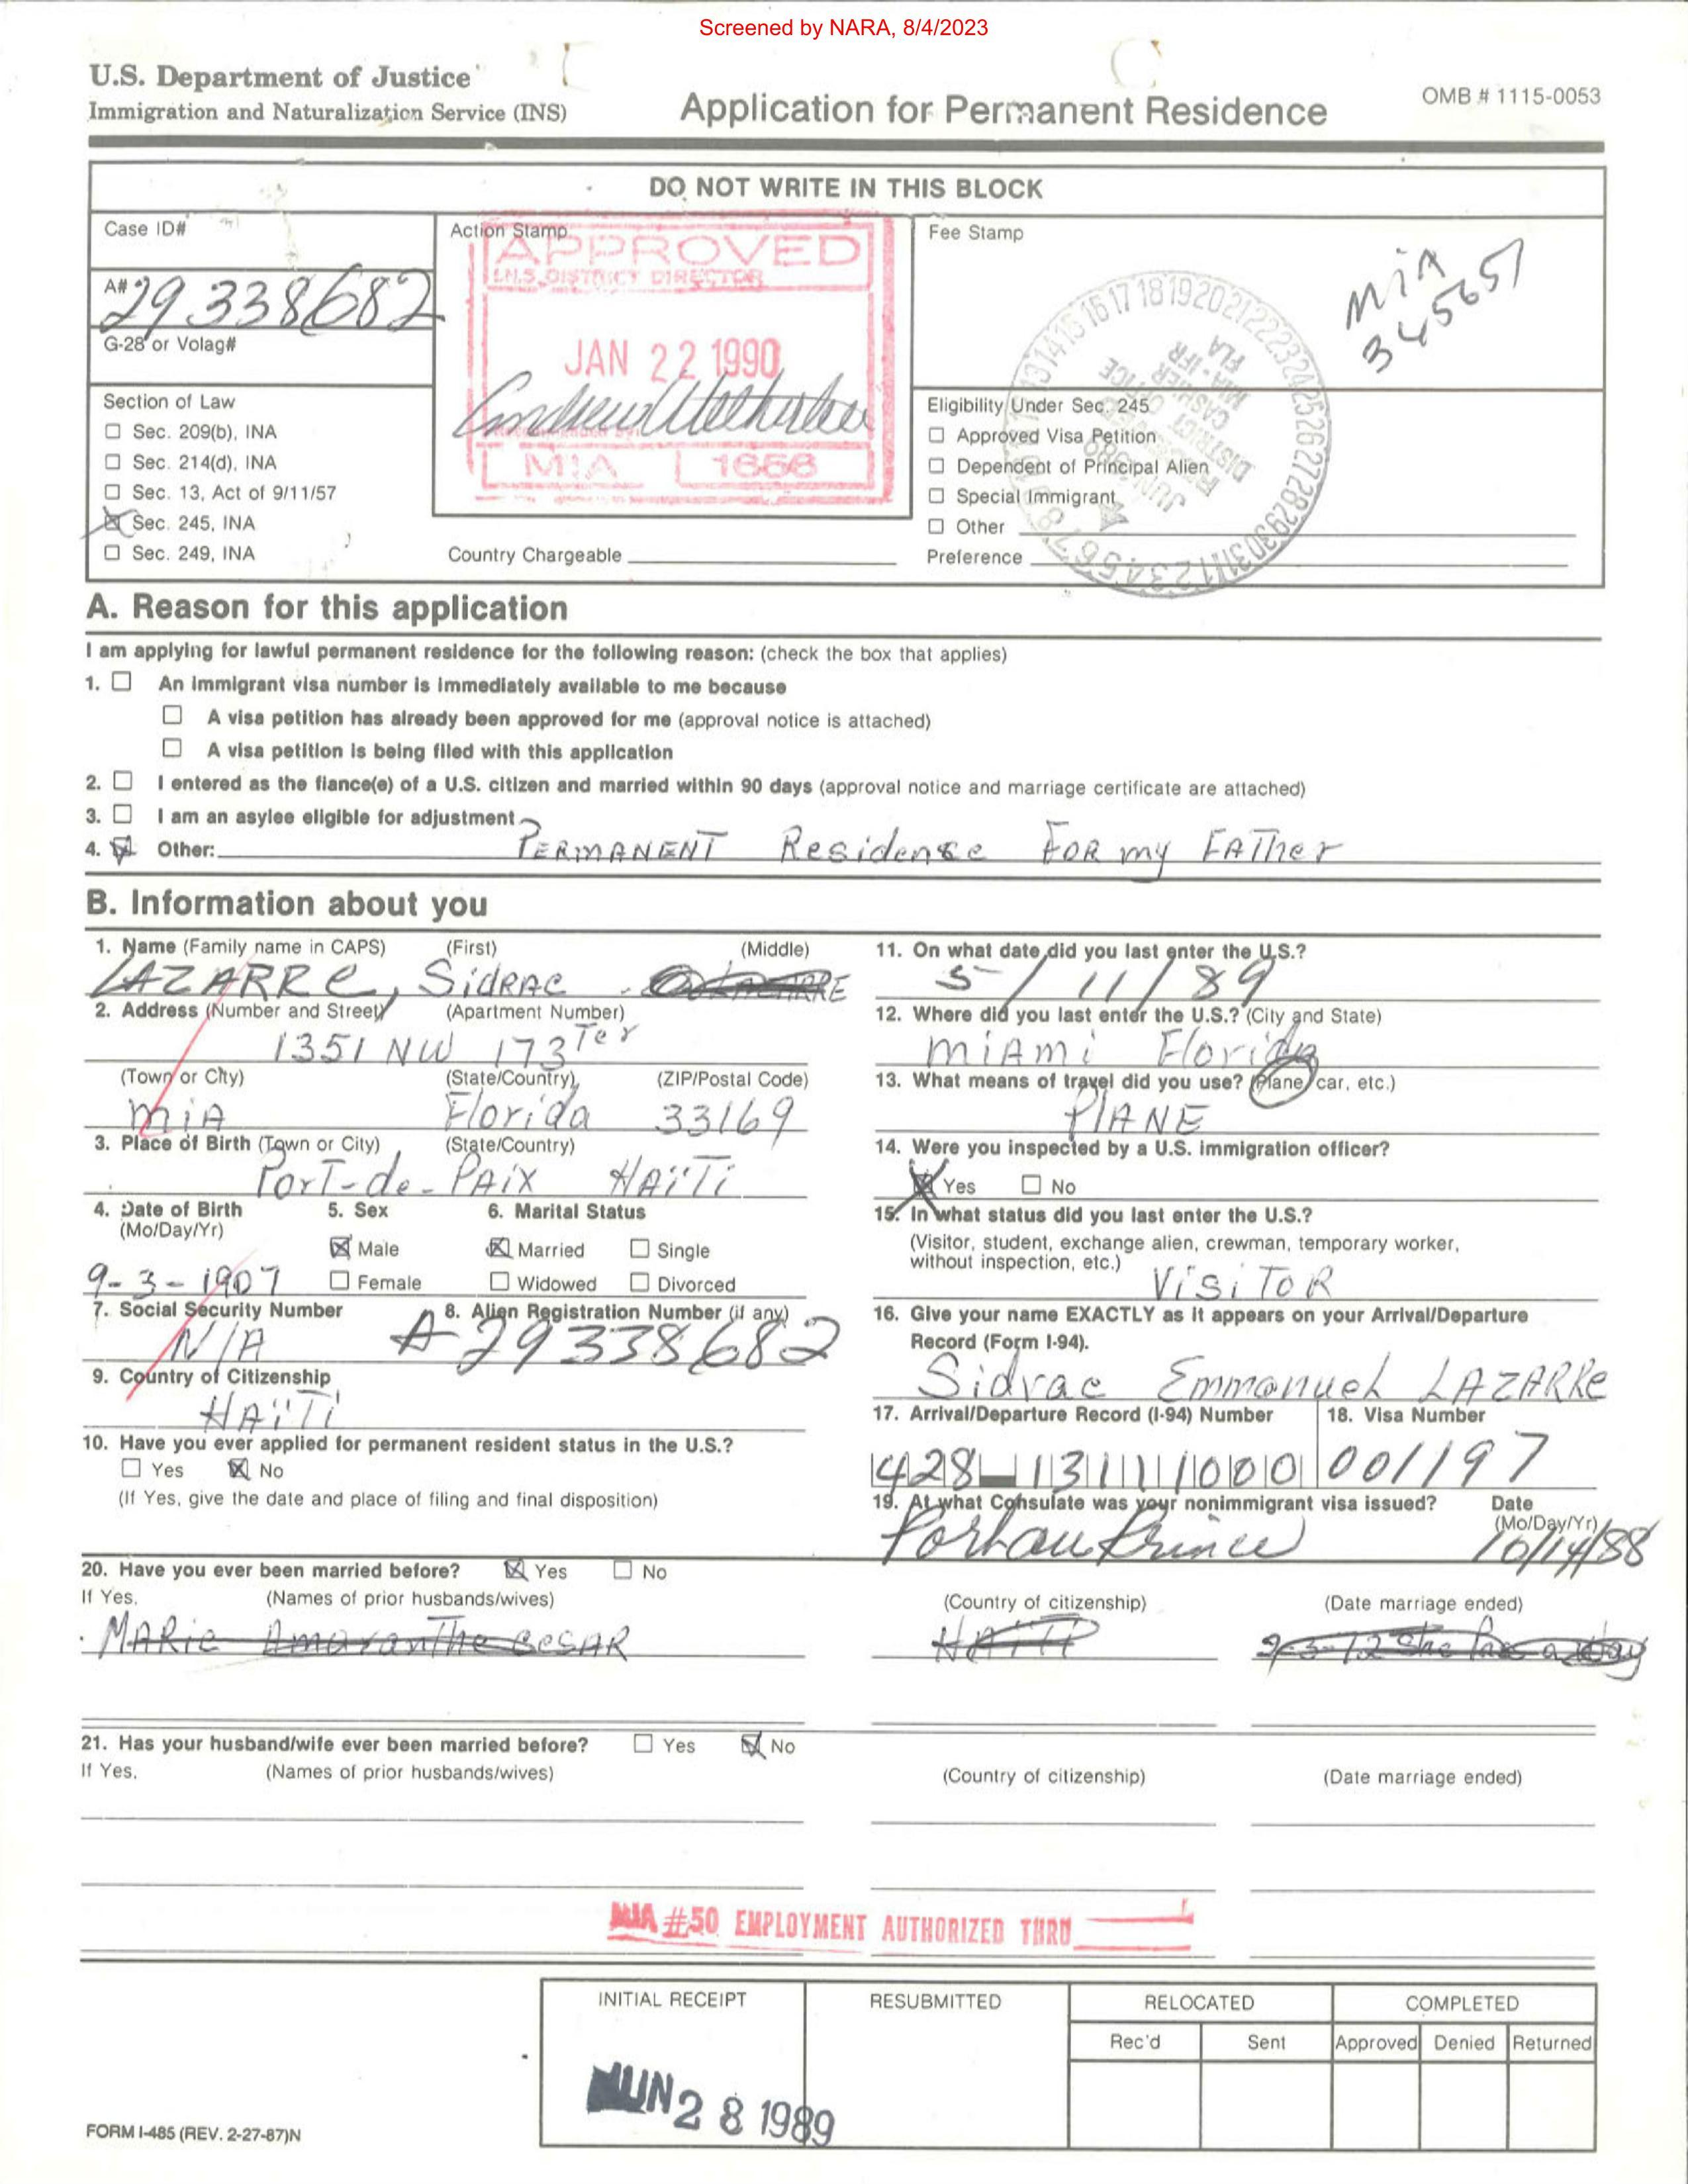 Screened by NARA, 8/4/2023
U.S. Department of Justice
Immigration and Naturalization Service (INS)
Application for Permanent Residence
OMB # 1115-0053
DO NOT WRITE IN THIS BLOCK
Case ID#
A# 29 338682
G-28 or Volag#
Action Stamp
APPROVED
I.N.S. DISTRICT DIRECTOR
JAN 22 1990
MIA 1656
Fee Stamp
MiA
345651
Section of Law
☐ Sec. 209(b), INA
☐ Sec. 214(d), INA
☐ Sec. 13, Act of 9/11/57
☒ Sec. 245, INA
☐ Sec. 249, INA
Country Chargeable
Eligibility Under Sec. 245
☐ Approved Visa Petition
☐ Dependent of Principal Alien
☐ Special Immigrant
☐ Other
Preference
A. Reason for this application
I am applying for lawful permanent residence for the following reason: (check the box that applies)
1. ☐ An immigrant visa number is immediately available to me because
☐ A visa petition has already been approved for me (approval notice is attached)
☐ A visa petition is being filed with this application
2. ☐ I entered as the fiance(e) of a U.S. citizen and married within 90 days (approval notice and marriage certificate are attached)
3. ☐ I am an asylee eligible for adjustment
4. ☒ Other: PERMANENT Residense FOR my FATher
B. Information about you
1. Name (Family name in CAPS) (First) (Middle)
LAZARRe, SidRAC
2. Address (Number and Street) (Apartment Number)
1351 NW 173 Ter
(Town or City) (State/Country) (ZIP/Postal Code)
MiA Florida 33169
3. Place of Birth (Town or City) (State/Country)
PorT-de-PAix HAïTi
4. Date of Birth (Mo/Day/Yr)
9-3-1907
5. Sex
☒ Male
☐ Female
6. Marital Status
☒ Married ☐ Single
☐ Widowed ☐ Divorced
7. Social Security Number
N/A
8. Alien Registration Number (if any)
A 29338682
9. Country of Citizenship
HAïTi
10. Have you ever applied for permanent resident status in the U.S.?
☐ Yes ☒ No
(If Yes, give the date and place of filing and final disposition)
11. On what date did you last enter the U.S.?
5/11/89
12. Where did you last enter the U.S.? (City and State)
MiAmi Florida
13. What means of travel did you use? (Plane, car, etc.)
PlANE
14. Were you inspected by a U.S. immigration officer?
☒ Yes ☐ No
15. In what status did you last enter the U.S.?
(Visitor, student, exchange alien, crewman, temporary worker,
without inspection, etc.)
ViSiToR
16. Give your name EXACTLY as it appears on your Arrival/Departure
Record (Form I-94).
Sidrac Emmanuel LAZARRe
17. Arrival/Departure Record (I-94) Number
428-13111000
18. Visa Number
001197
19. At what Consulate was your nonimmigrant visa issued? Date (Mo/Day/Yr)
Port au Prince 10/14/88
20. Have you ever been married before? ☒ Yes ☐ No
If Yes, (Names of prior husbands/wives) (Country of citizenship) (Date marriage ended)
MARie AmaranThe CeSAR HAiTi
21. Has your husband/wife ever been married before? ☐ Yes ☒ No
If Yes, (Names of prior husbands/wives) (Country of citizenship) (Date marriage ended)
MIA #50 EMPLOYMENT AUTHORIZED THRU
INITIAL RECEIPT RESUBMITTED RELOCATED COMPLETED
Rec'd Sent Approved Denied Returned
JUN 28 1989
FORM I-485 (REV. 2-27-87)N